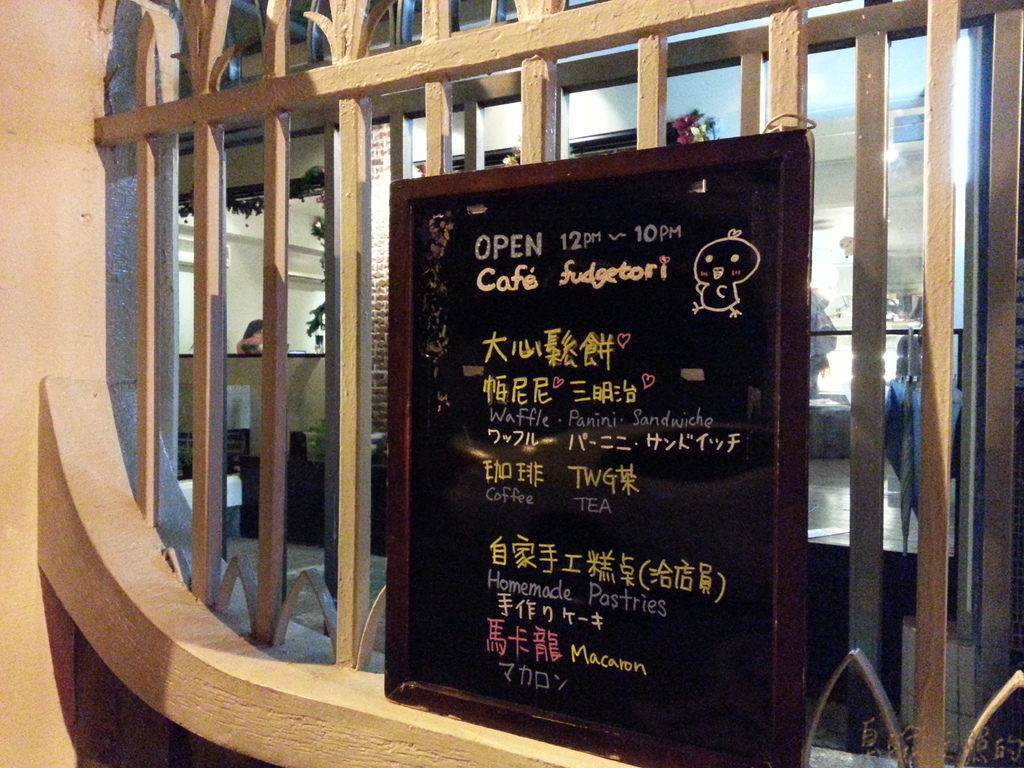 OPEN 12PM ~ 10PM
Café fudgetori
大心鬆餅
帕尼尼 三明治
Waffle · Panini · Sandwiche
ワッフル パーニニ · サンドイッチ
珈琲 TWG茶
Coffee TEA
自家手工糕桌(洽店員)
Homemade Pastries
手作りケーキ
馬卡龍 Macaron
マカロン